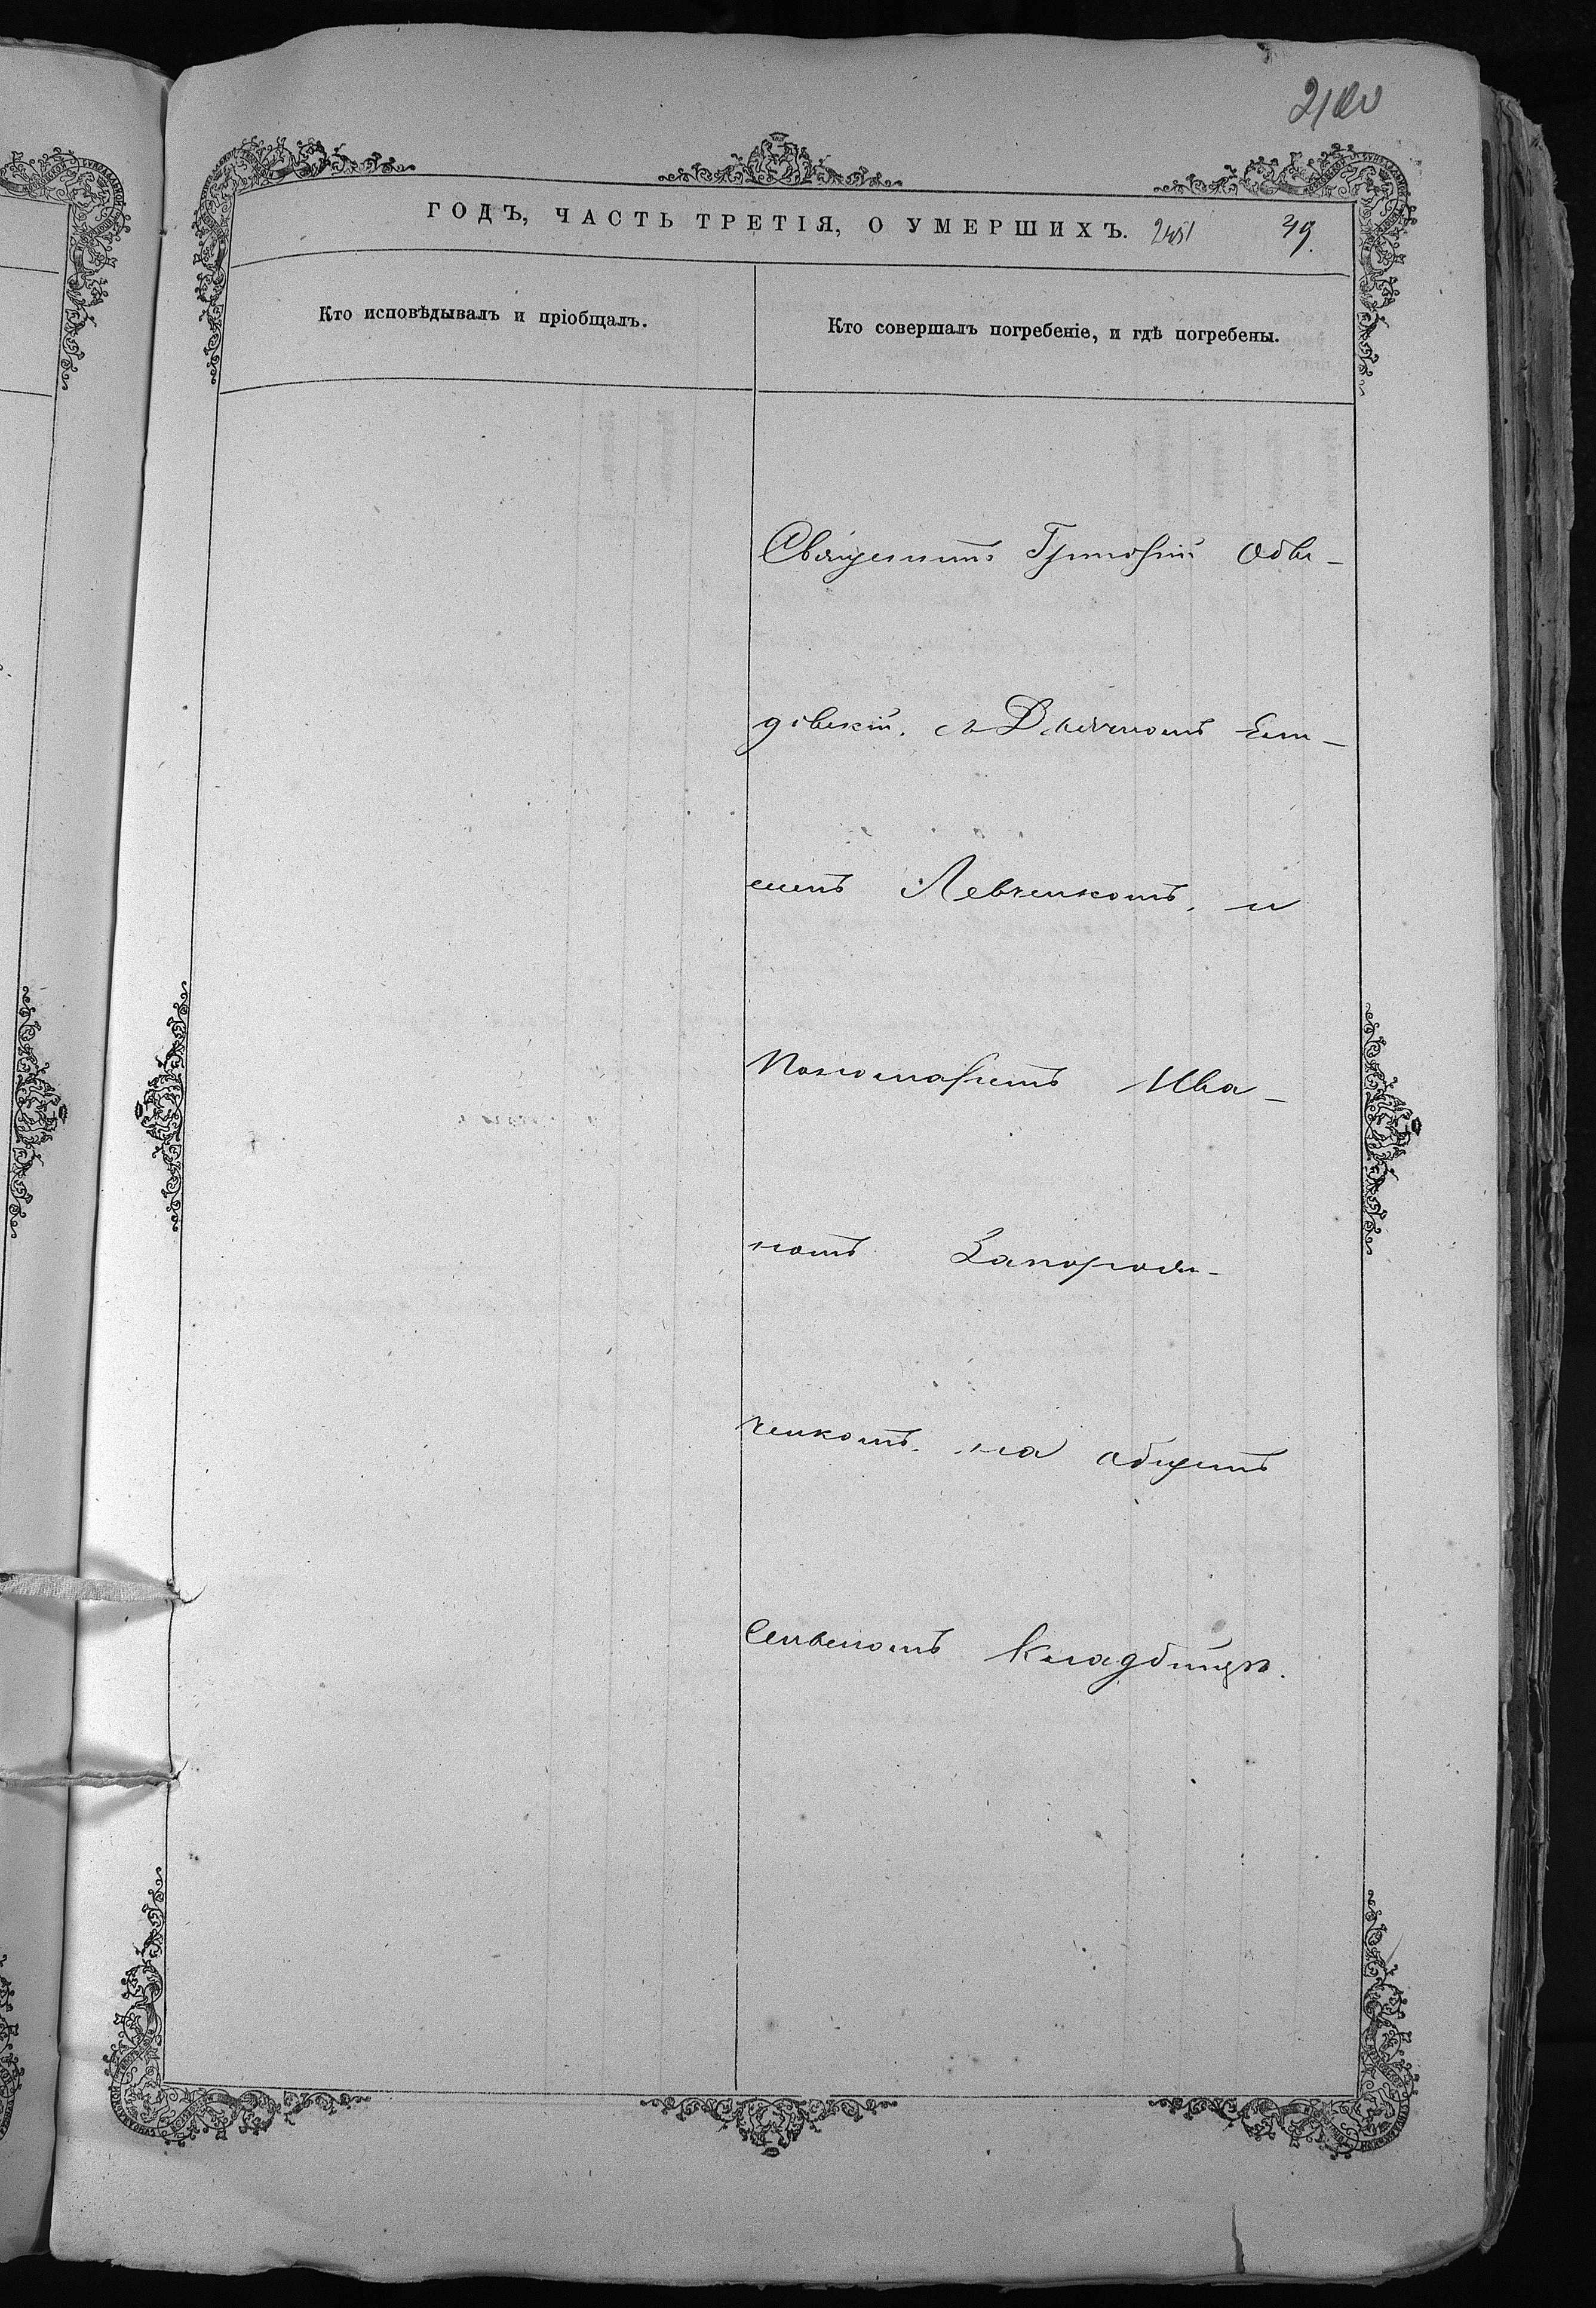 ГОДЪ, ЧАСТЬ ТРЕТІЯ, О УМЕРШИХЪ. 49.
Кто исповѣдывалъ и пріобщалъ.
Кто совершалъ погребеніе, и гдѣ погребены.
Священникъ Григорій
съ Дьячкомъ
Левченкомъ, и
Пономаремъ Ива-
номъ Запорож-
ченкомъ. на общемъ
Сельскомъ Кладбищѣ.